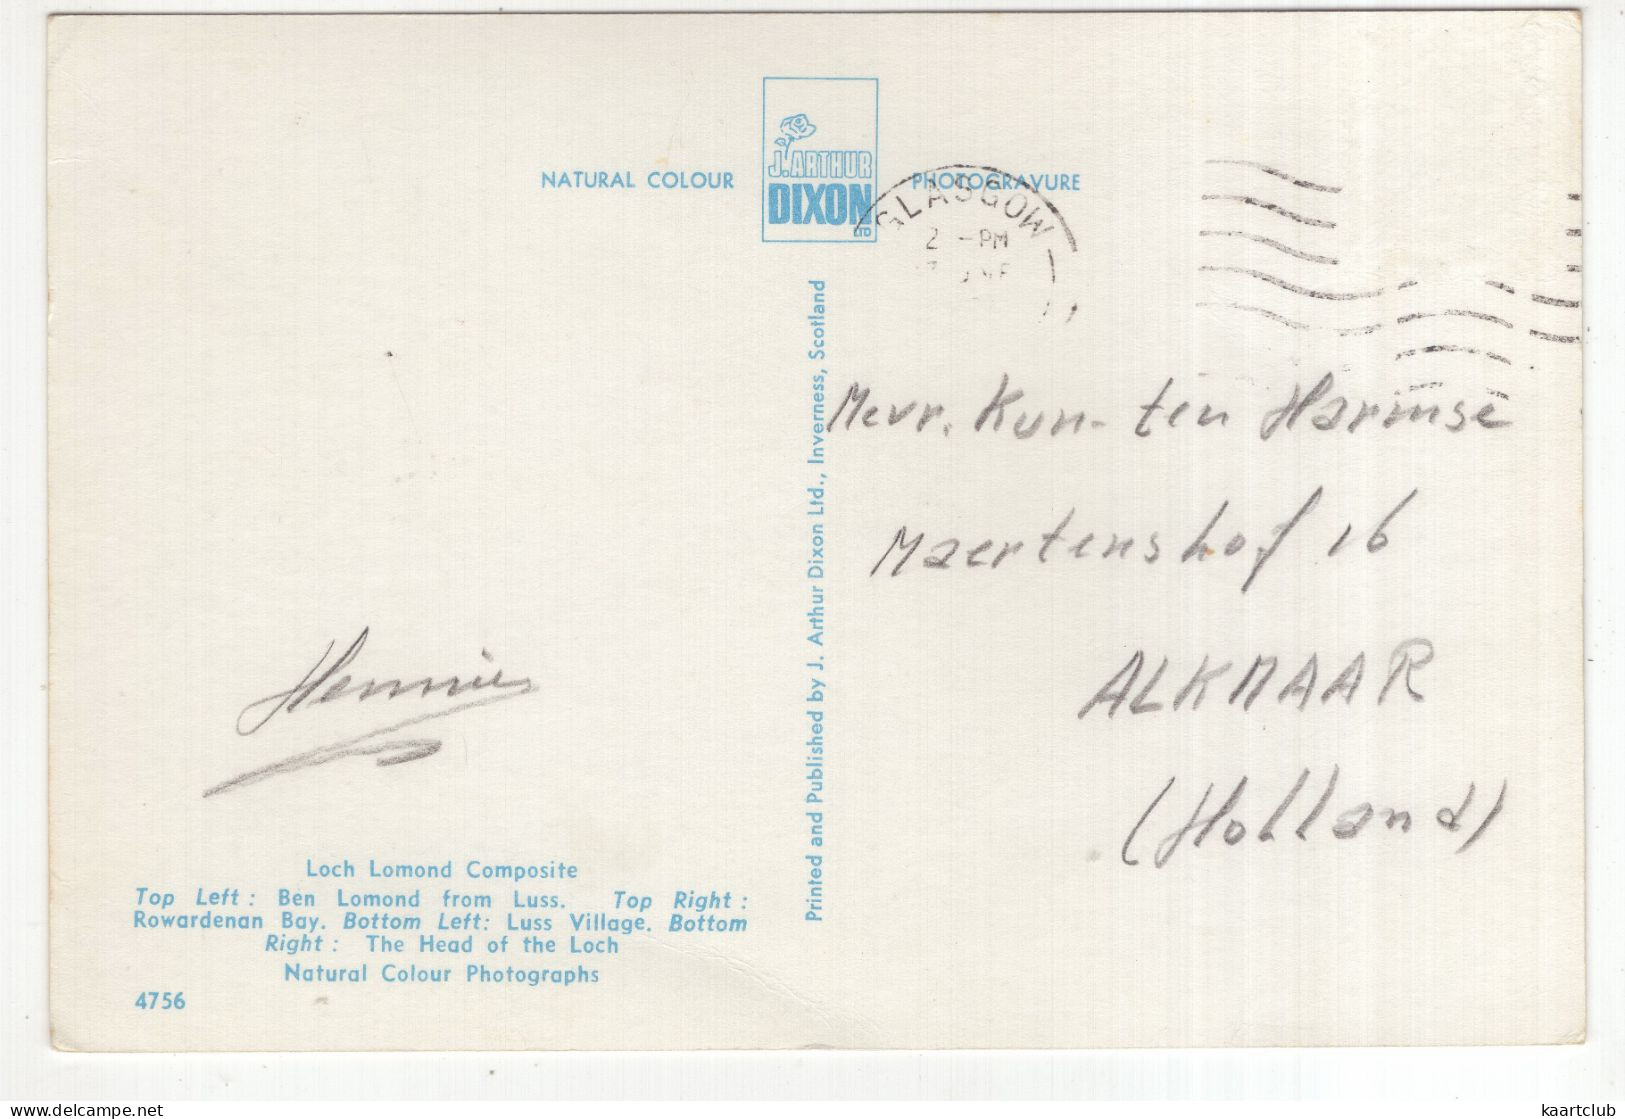 NATURAL COLOUR
J. ARTHUR
DIXON
LTD
PHOTOGRAVURE
GLASGOW
2 - PM
Printed and Published by J. Arthur Dixon Ltd., Inverness, Scotland
Mevr. Kun- ten Harmse
Maertenshof 16
ALKMAAR
(Holland)
Hennie
Loch Lomond Composite
Top Left : Ben Lomond from Luss. Top Right :
Rowardenan Bay. Bottom Left: Luss Village. Bottom
Right : The Head of the Loch
Natural Colour Photographs
4756
delcampe.net
kaartclub